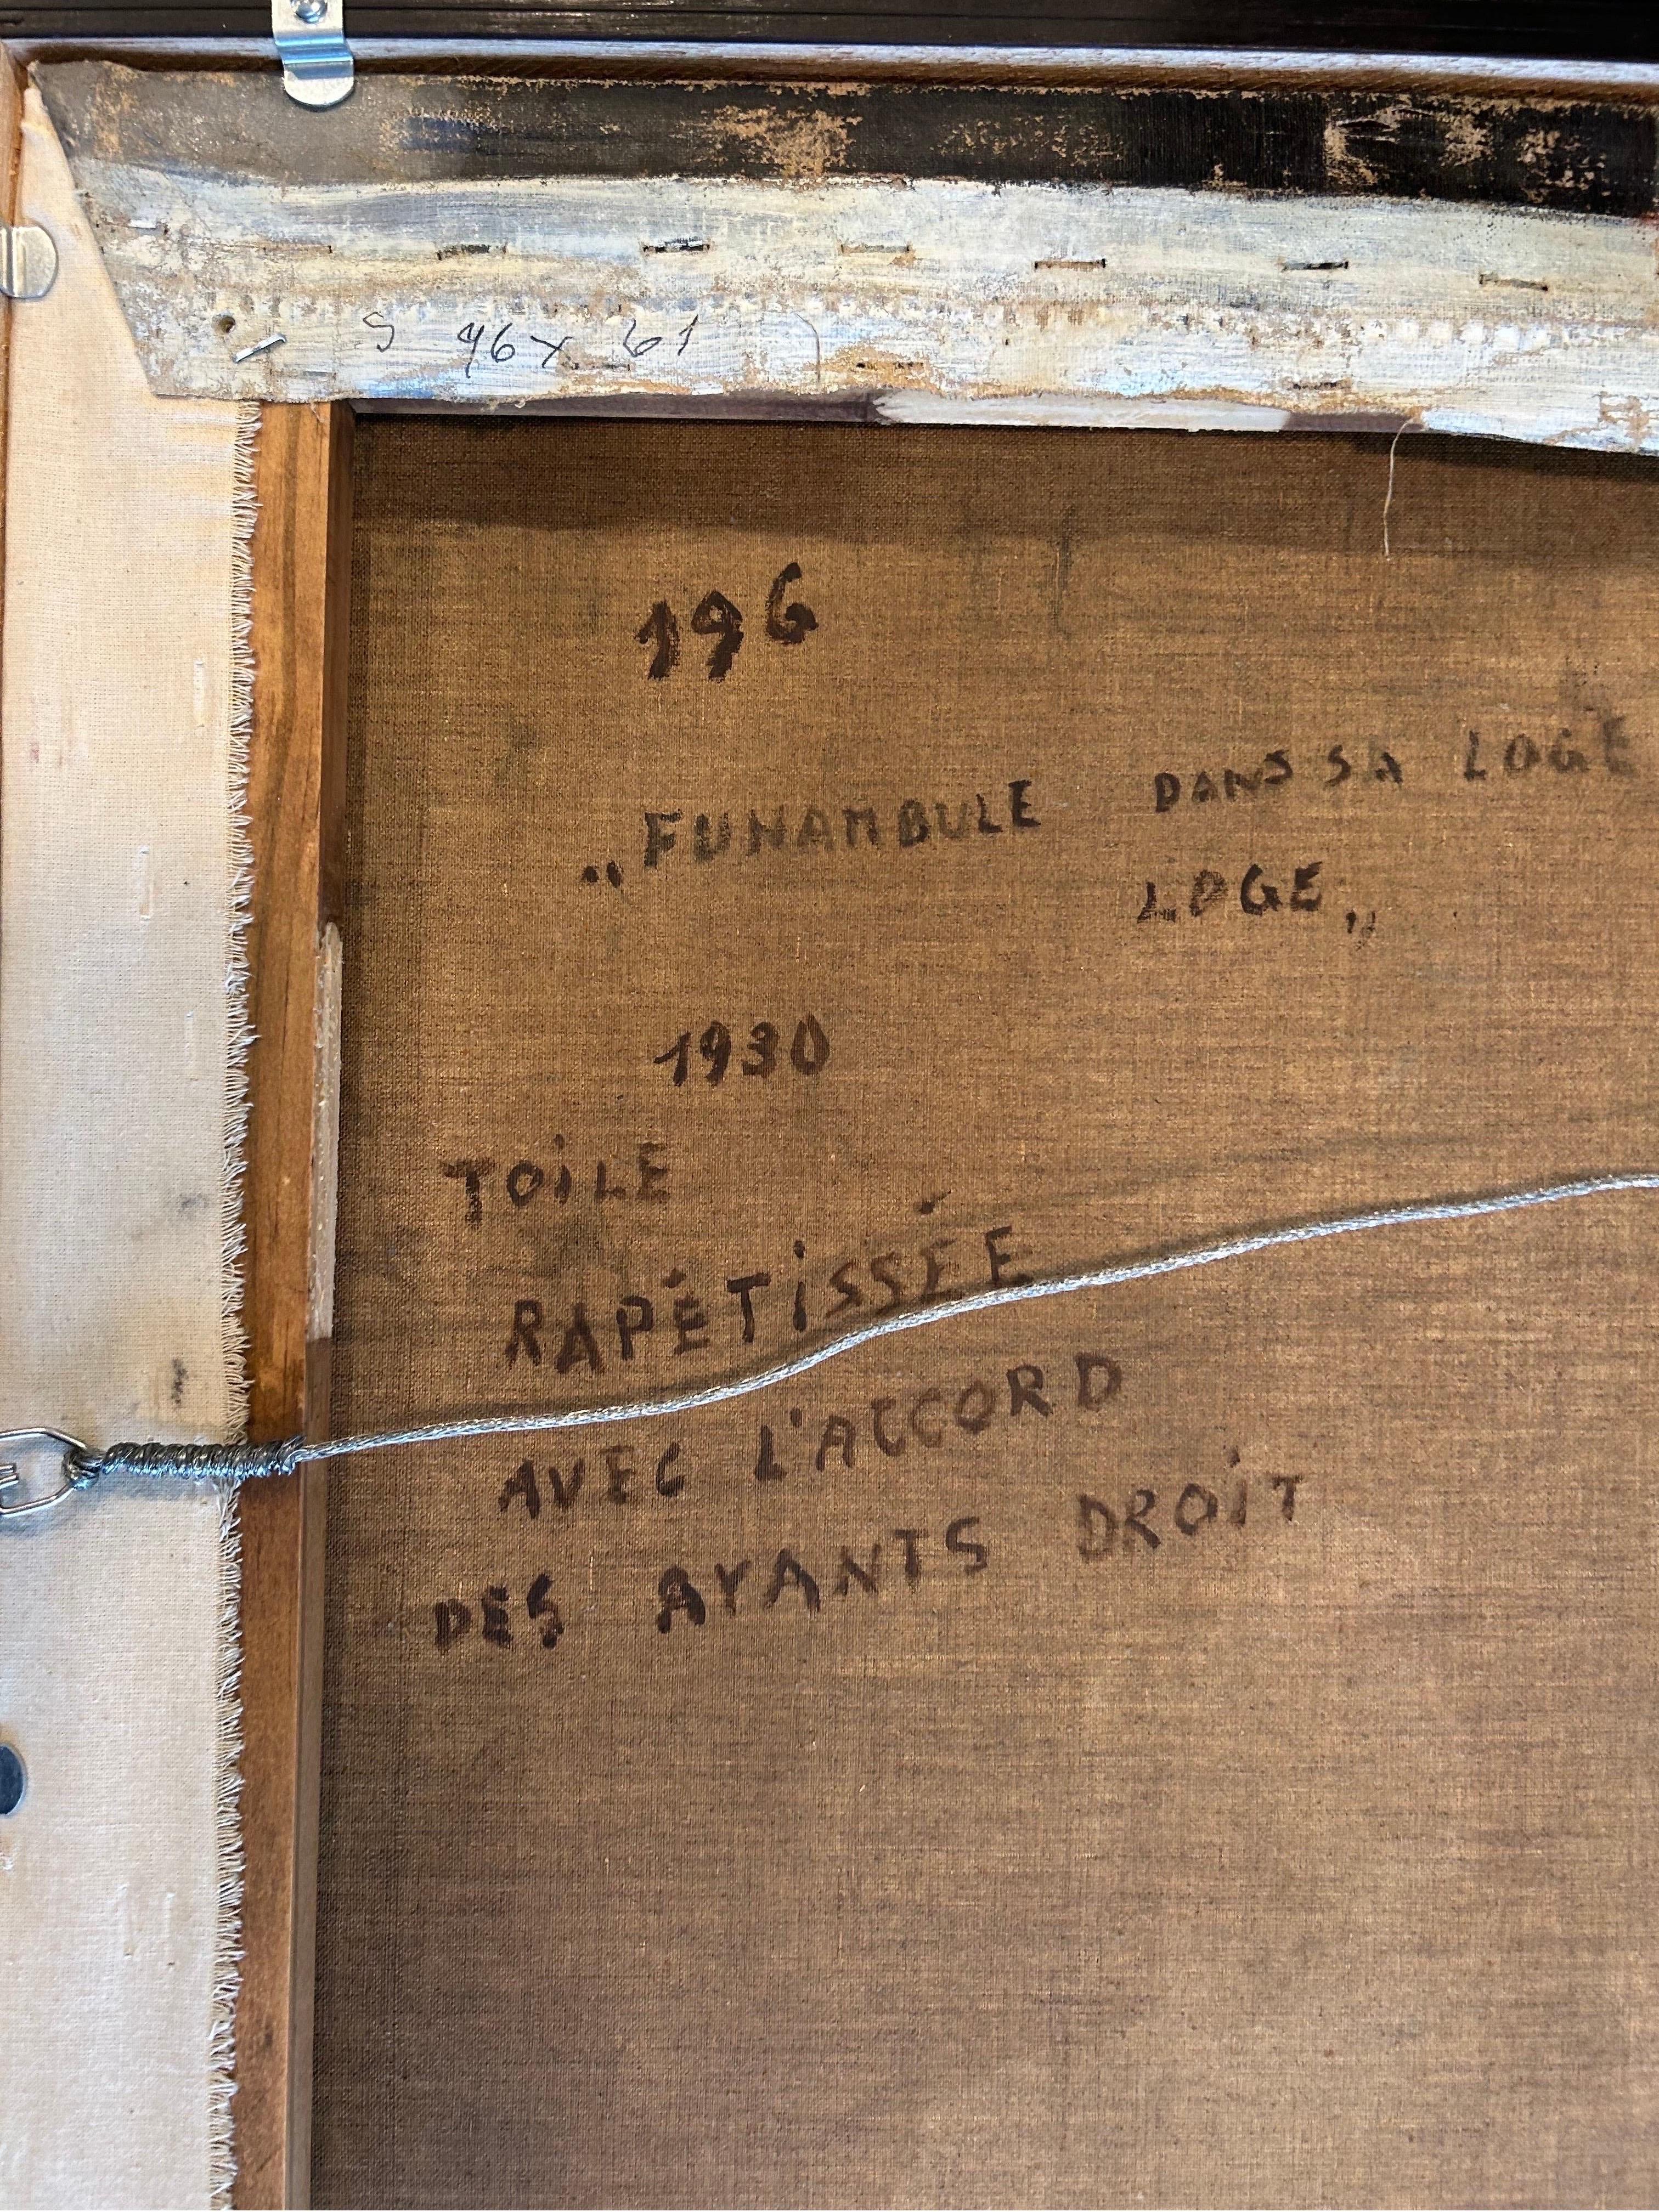 S 46 x 61
196
„FUNAMBULE DANS SA LOGE
LOGE„
1930
TOiLE
RAPÉTiSSÉE
AVEC L'ACCORD
DES AYANTS DROiT